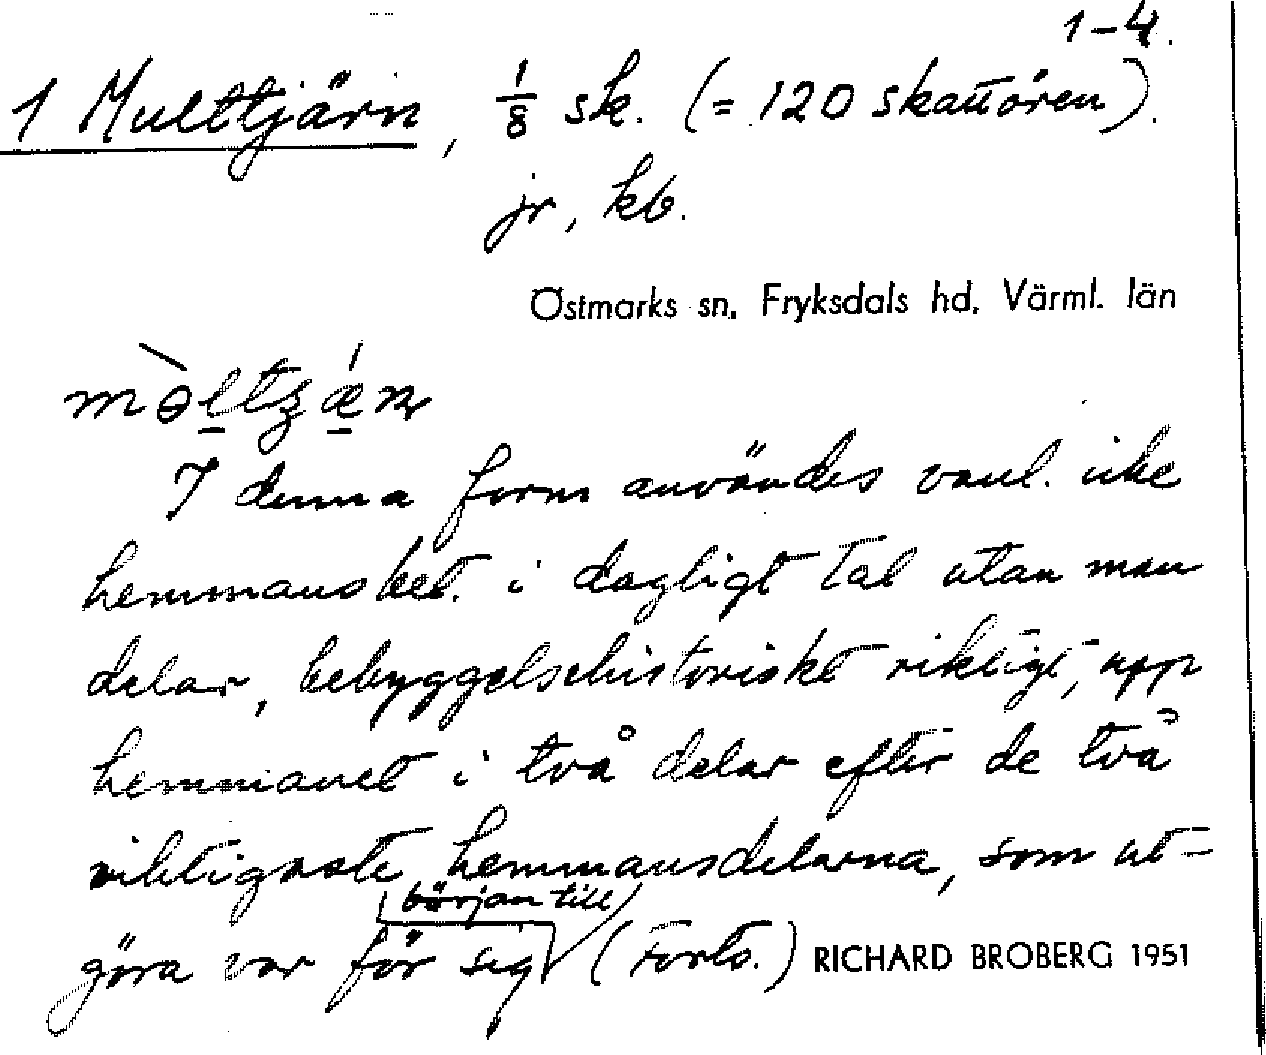 1-4.
1 Multtjärn, 1/8 sk. (= 120 skattören).
jr, kb.
Östmarks sn. Fryksdals hd. Värml. län
I denna form användes vanl. icke
hemmansbet. i dagligt tal utan man
delar, bebyggelsehistoriskt riktigt, upp
hemmanet i två delar efter de två
viktigaste hemmansdelarna, som ut-
början till
göra var för sig (Forts.) RICHARD BROBERG 1951